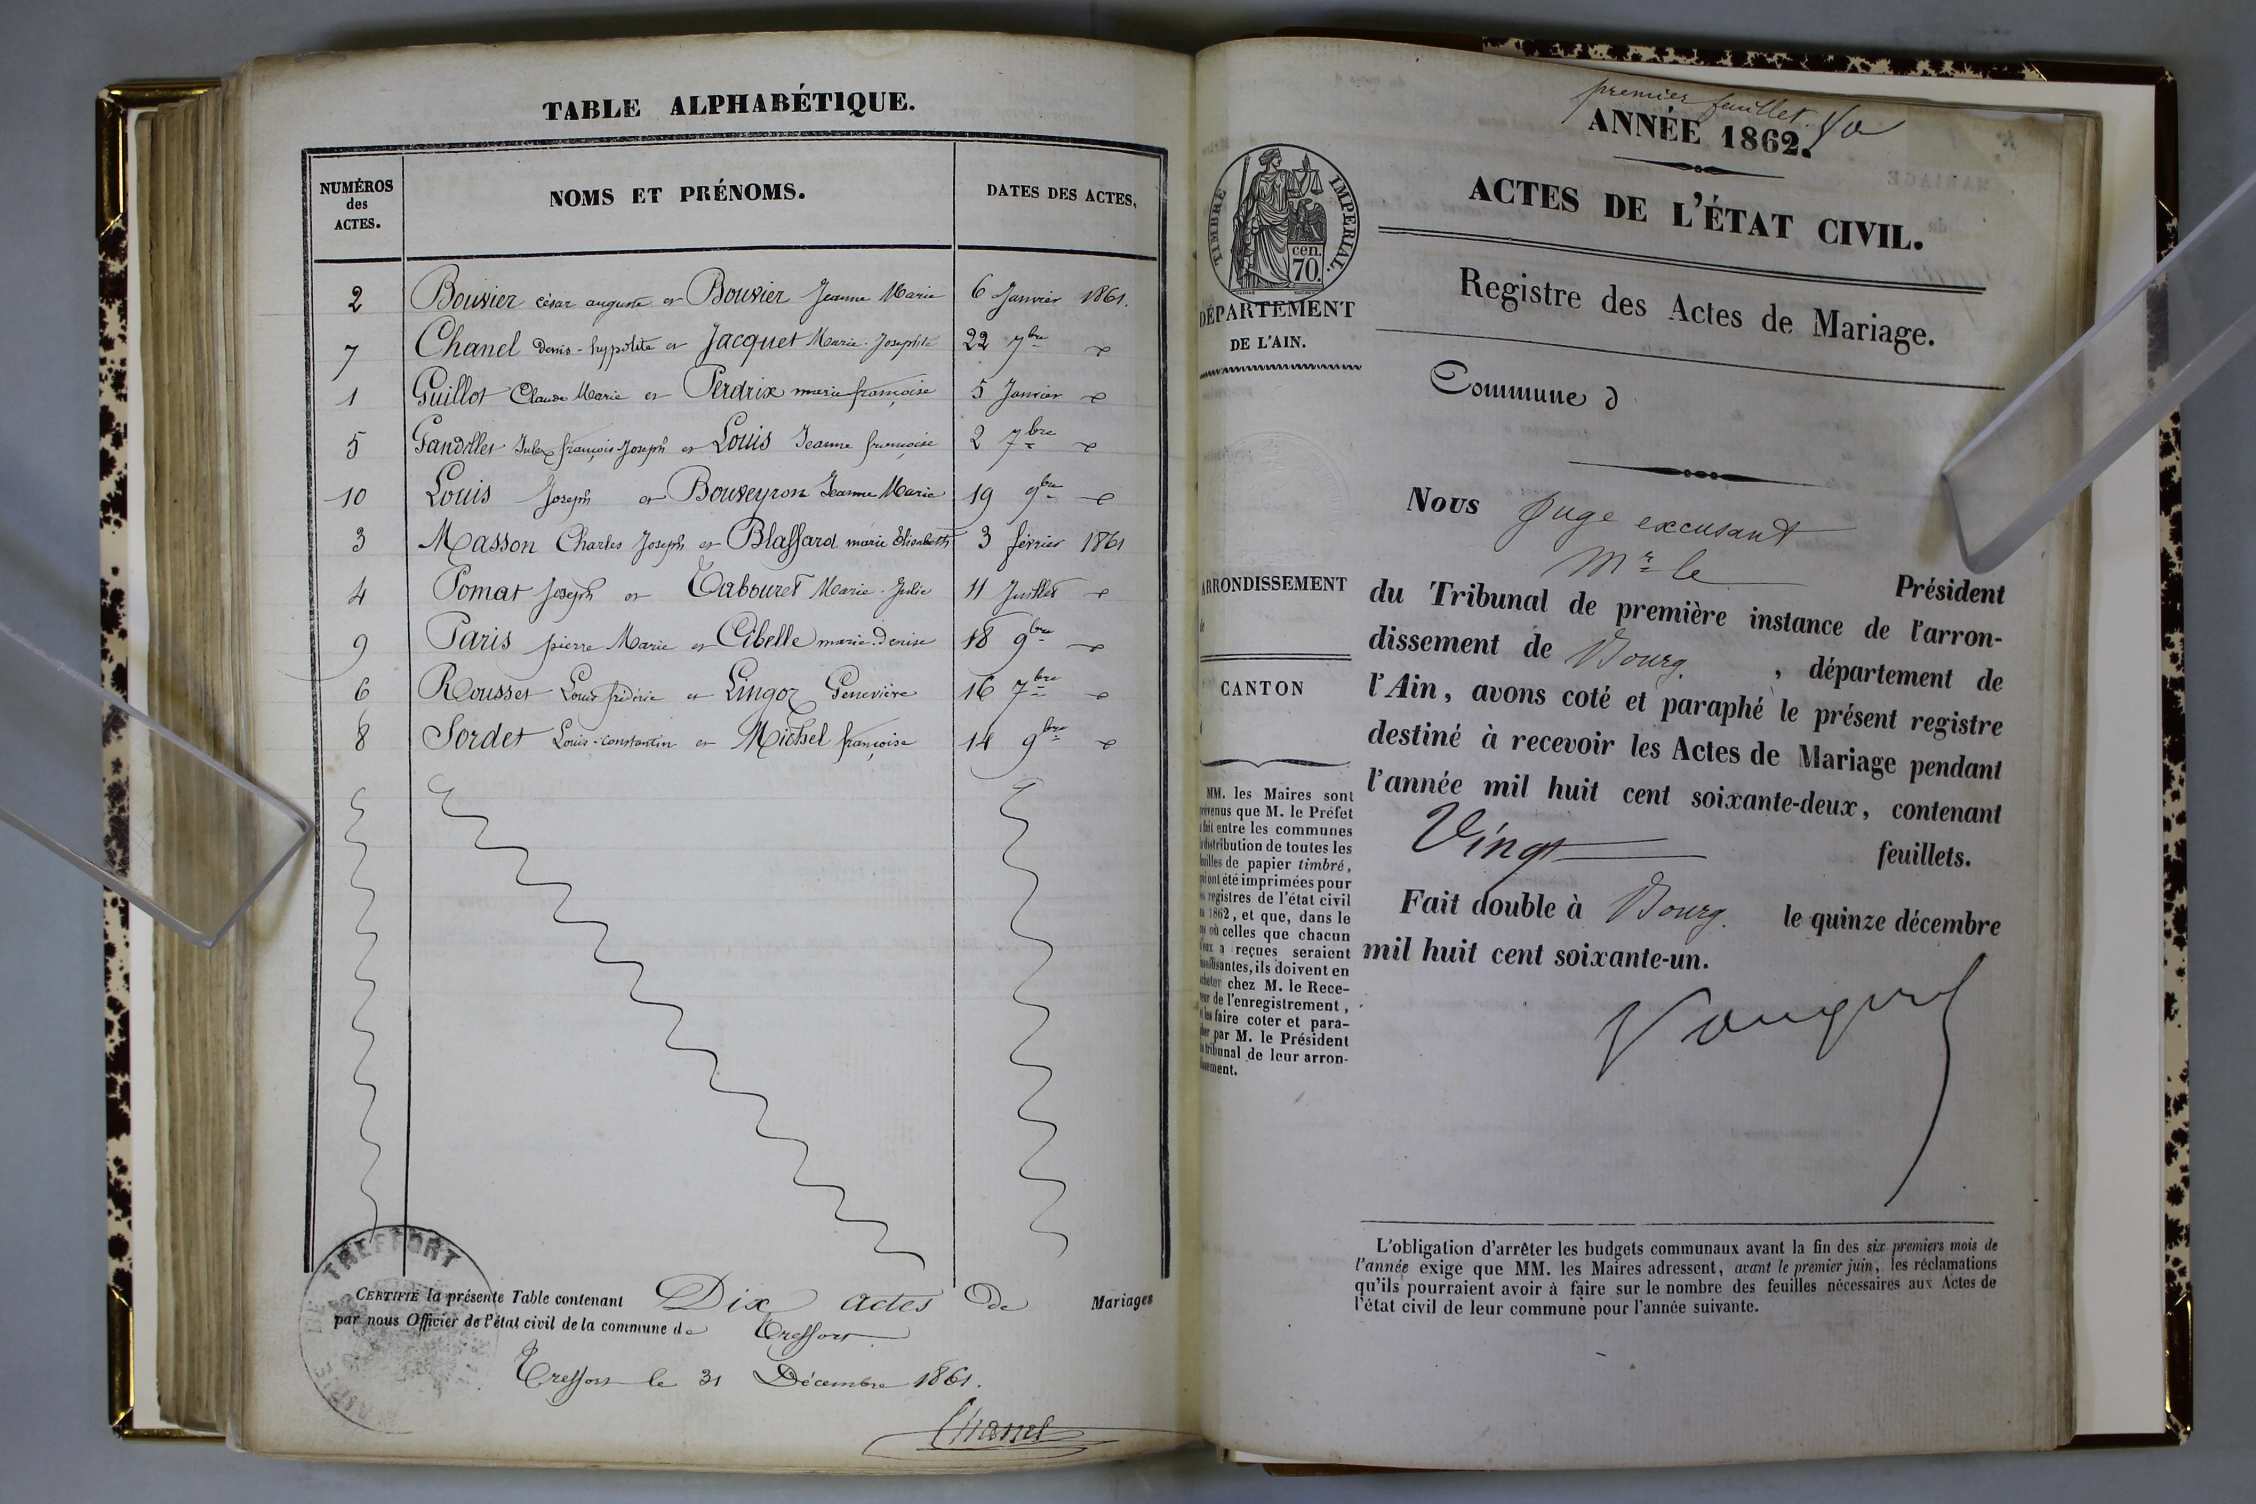 TABLE ALPHABÉTIQUE.
NUMÉROS des ACTES. NOMS ET PRÉNOMS. DATES DES ACTES.
2 Bouvier César auguste et Bouvier Jeanne Marie 6 Janvier 1861.
7 Chanel Denis-hyppolite et Jacquet Marie-Josephte 22 7bre
1 Guillot Claude Marie et Perdrix marie françoise 5 Janvier
5 Gandillet Jules françois Joseph et Louis Jeanne françoise 2 7bre
10 Louis Joseph et Bouveyron Jeanne Marie 19 9bre
3 Masson Charles Joseph et Blassard marie Elisabeth 3 février 1861
4 Pomat Joseph et Tabouret Marie-Julie 11 Juillet
9 Paris pierre Marie et Cibelle marie-denise 18 9bre
6 Rousset Louis fridéric et Lingoz Geneviève 16 7bre
8 Sordet Louis-constantin et Michel françoise 14 9bre
MAIRIE DE TREFFORT
CERTIFIÉ la présente Table contenant Dix actes de Mariages
par nous Officier de l'état civil de la commune de Treffort
Treffort le 31 Décembre 1861.
Chanel
premier feuillet.
ANNÉE 1862.
ACTES DE L'ÉTAT CIVIL.
Registre des Actes de Mariage.
Commune d
TIMBRE IMPERIAL.
cen.
70.
DÉPARTEMENT
DE L'AIN.
ARRONDISSEMENT
de
CANTON
MM. les Maires sont
prévenus que M. le Préfet
a fait entre les communes
la distribution de toutes les
feuilles de papier timbré,
qui ont été imprimées pour
les registres de l'état civil
en 1862, et que, dans le
cas où celles que chacun
d'eux a reçues seraient
insuffisantes, ils doivent en
acheter chez M. le Rece-
veur de l'enregistrement,
et les faire coter et para-
pher par M. le Président
du tribunal de leur arron-
dissement.
Nous Juge excusant
Mr le Président
du Tribunal de première instance de l'arron-
dissement de Bourg, département de
l'Ain, avons coté et paraphé le présent registre
destiné à recevoir les Actes de Mariage pendant
l'année mil huit cent soixante-deux, contenant
Vingt feuillets.
Fait double à Bourg. le quinze décembre
mil huit cent soixante-un.
L'obligation d'arrêter les budgets communaux avant la fin des six premiers mois de
l'année exige que MM. les Maires adressent, avant le premier juin, les réclamations
qu'ils pourraient avoir à faire sur le nombre des feuilles nécessaires aux Actes de
l'état civil de leur commune pour l'année suivante.